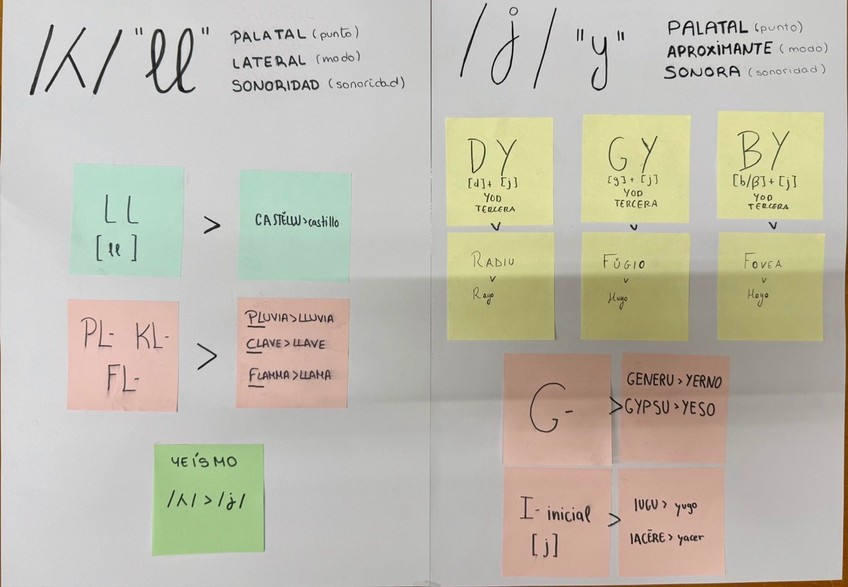 /ʎ/ "ll"
PALATAL (punto)
LATERAL (modo)
SONORIDAD (sonoricdad)
LL
[ll]
>
CASTĔLLU>castillo
PL- KL-
FL-
>
PLUVIA>LLUVIA
CLAVE>LLAVE
FLAMMA>LLAMA
YEÍSMO
/ʎ/>/j/
/j/ "y"
PALATAL (punto)
APROXIMANTE (modo)
SONORA (sonoridad)
DY
[d]+ [j]
YOD
TERCERA
>
RADIU
>
Rayo
GY
[g]+ [j]
YOD
TERCERA
>
FŬGIO
>
Huyo
BY
[b/β]+[j]
YOD
TERCERA
>
FOVEA
>
Hoyo
G-
>
GENERU>YERNO
GYPSU>YESO
I- inicial
[j]
>
IUGU> yugo
IACĒRE> yacer